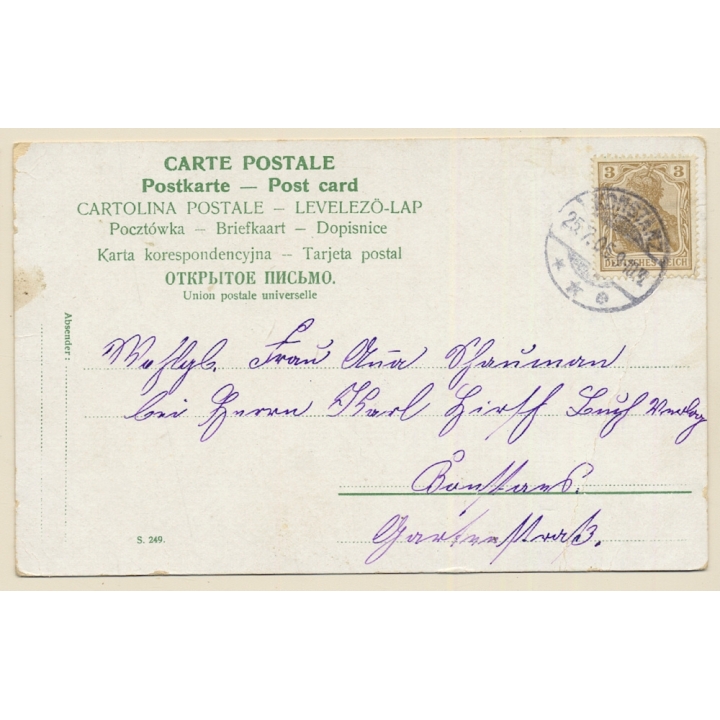 CARTE POSTALE
Postkarte — Post card
CARTOLINA POSTALE – LEVELEZÖ-LAP
Pocztówka – Briefkaart – Dopisnice
Karta korespondencyjna – Tarjeta postal
ОТКРЫТОЕ ПИСЬМО.
Union postale universelle
3 3
DEUTSCHES REICH
25.7.05
Absender:
Wohlgb. Frau Anna Schauman
bei Herrn Karl Hirsch Buch Verlag
Constans.
Gartenstraß.
S. 249.